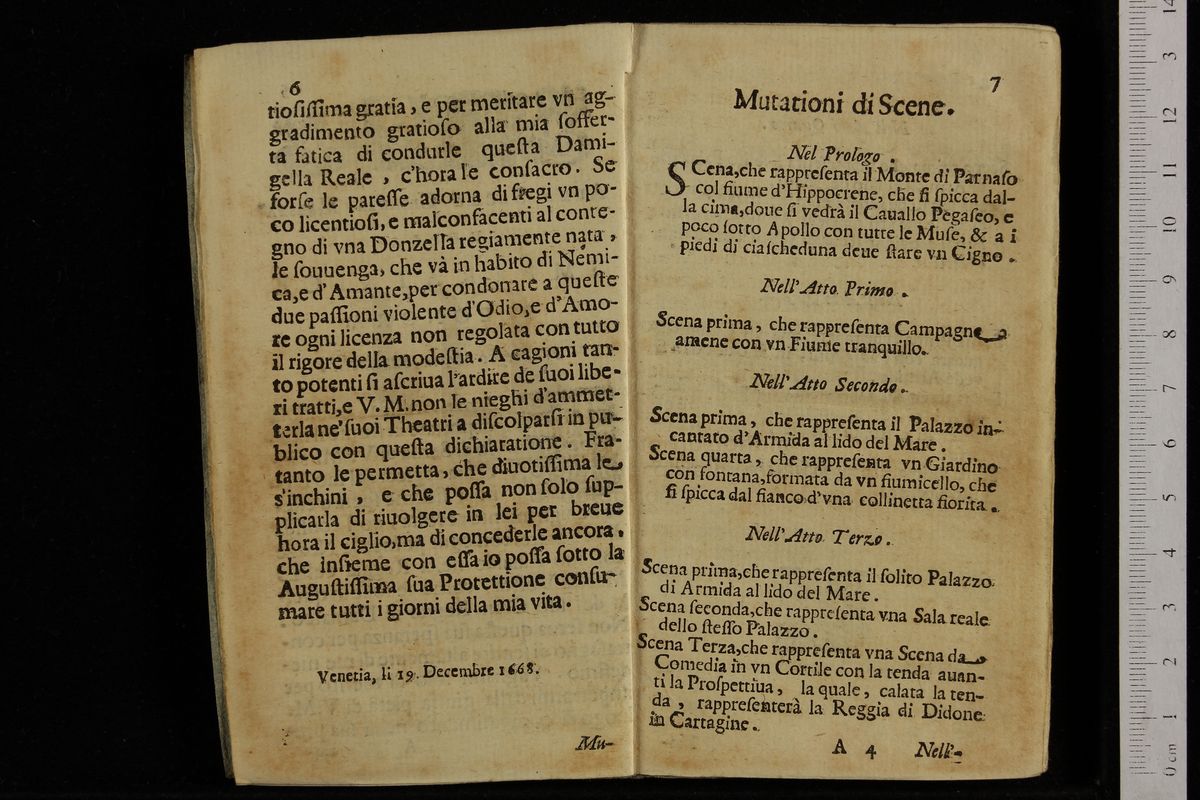 6
tiosissima gratia, e per meritare vn ag-
gradimento gratioso alla mia soffer-
ta fatica di condurle questa Dami-
gella Reale, c'hora le consacro. Se
forse le paresse adorna di fregi vn po-
co licentiosi, e malconfacenti al conte-
gno di vna Donzella regiamente nata,
le souuenga, che và in habito di Nemi-
ca, e d'Amante, per condonare a queste
due passioni violente d'Odio, e d'Amo-
re ogni licenza non regolata con tutto
il rigore della modestia. A cagioni tan-
to potenti si ascriua l'ardire de suoi libe-
ri tratti, e V. M. non le nieghi d'ammet-
terla ne' suoi Theatri a discolparsi in pu-
blico con questa dichiaratione. Fra-
tanto le permetta, che diuotissima le
s'inchini, e che possa non solo sup-
plicarla di riuolgere in lei per breue
hora il ciglio, ma di concederle ancora,
che insieme con essa io possa sotto la
Augustissima sua Protettione consu-
mare tutti i giorni della mia vita.
Venetia, li 19. Decembre 1668.
Mu-
7
Mutationi di Scene.
Nel Prologo.
SCena, che rappresenta il Monte di Parnaso
col fiume d'Hippocrene, che si spicca dal-
la cima, doue si vedrà il Cauallo Pegaseo, e
poco sotto Apollo con tutte le Muse, & a i
piedi di ciascheduna deue stare vn Cigno.
Nell'Atto Primo.
Scena prima, che rappresenta Campagne
amene con vn Fiume tranquillo.
Nell'Atto Secondo.
Scena prima, che rappresenta il Palazzo in-
cantato d'Armida al lido del Mare.
Scena quarta, che rappresenta vn Giardino
con fontana, formata da vn fiumicello, che
si spicca dal fianco d'vna collinetta fiorita.
Nell'Atto Terzo.
Scena prima, che rappresenta il solito Palazzo
di Armida al lido del Mare.
Scena seconda, che rappresenta vna Sala reale
dello stesso Palazzo.
Scena Terza, che rappresenta vna Scena da
Comedia in vn Cortile con la tenda auan-
ti la Prospettiua, la quale, calata la ten-
da, rappresenterà la Reggia di Didone
in Cartagine.
A 4 Nell'-
0 cm 1 2 3 4 5 6 7 8 9 10 11 12 3 14